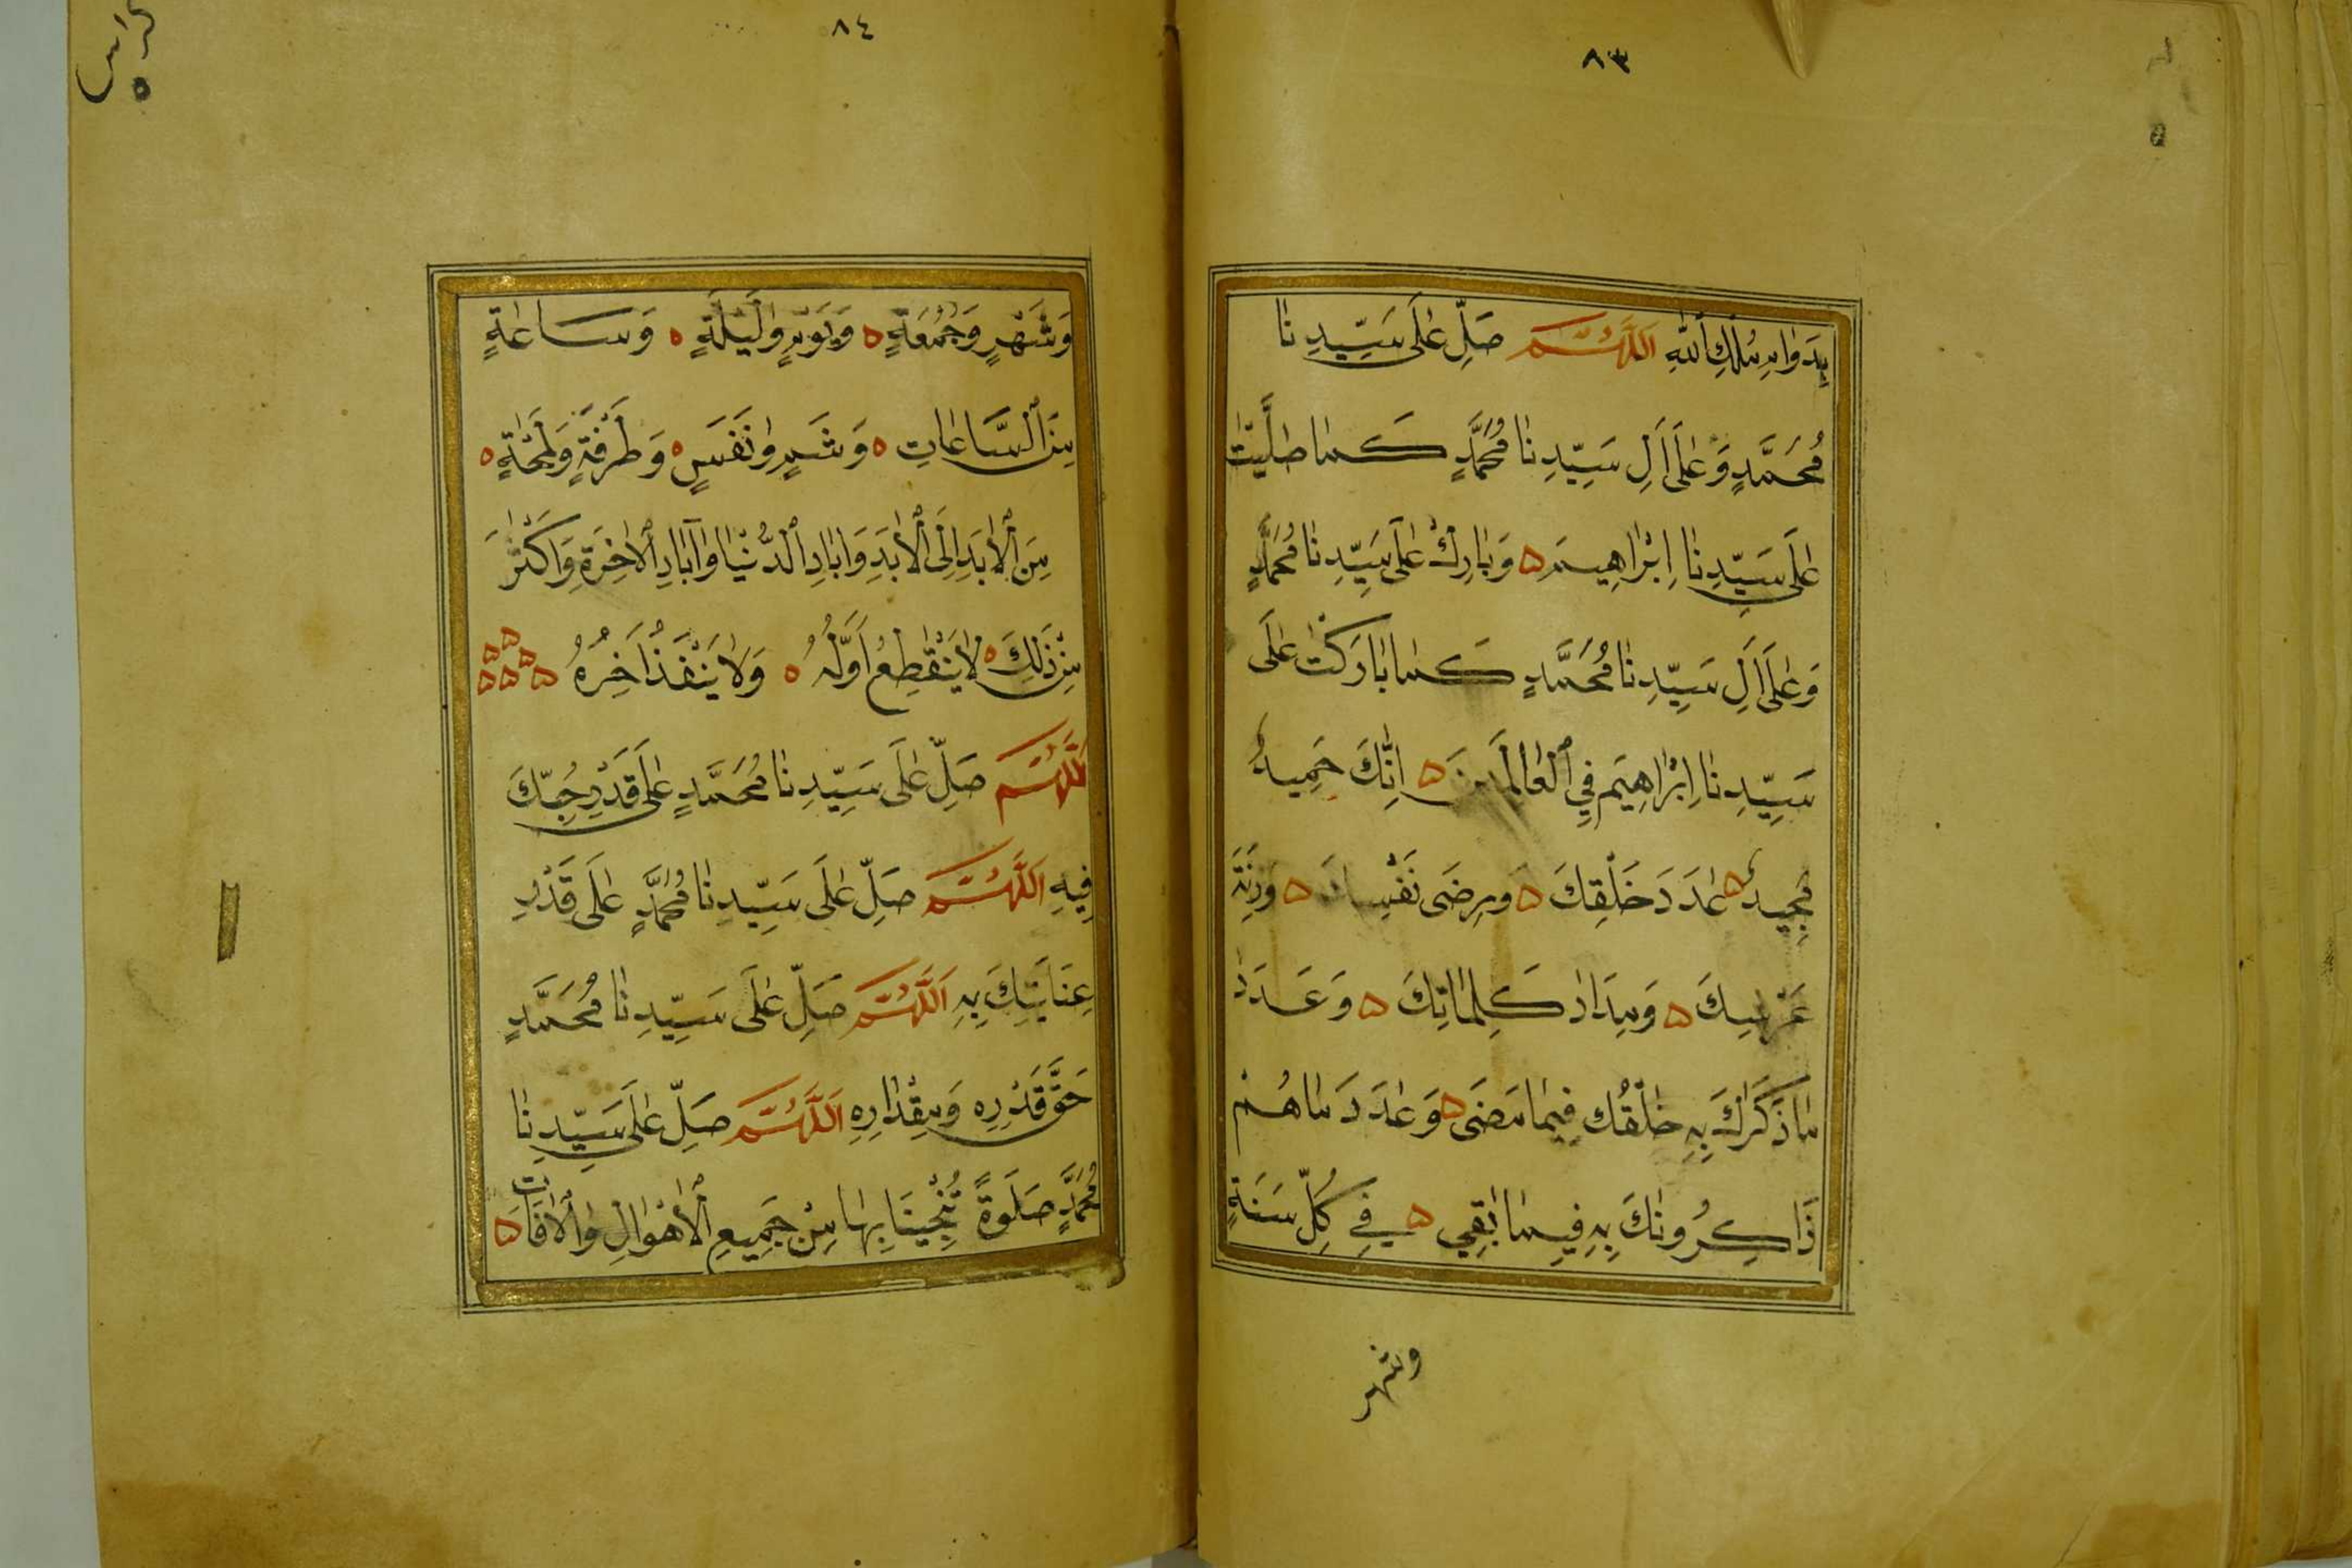 ٨٣
بِدَوَامِ مُلْكِ اللهِ اَللّٰهُمَّ صَلِّ عَلَى سَيِّدِنَا
مُحَمَّدٍ وَعَلَى اَلِ سَيِّدِنَا مُحَمَّدٍ كَمَا صَلَّيْتَ
عَلَى سَيِّدِنَا اِبْرَاهِيمَ ه وَبَارِكْ عَلَى سَيِّدِنَا مُحَمَّدٍ
وَعَلَى اَلِ سَيِّدِنَا مُحَمَّدٍ كَمَا بَارَكْتَ عَلَى
سَيِّدِنَا اِبْرَاهِيمَ فِي الْعَالَمِينَ ه اِنَّكَ حَمِيدٌ
مَجِيدٌ ه عَدَدَ خَلْقِكَ ه وَرِضَى نَفْسِكَ ه وَزِنَةَ
عَرْشِكَ ه وَمِدَادَ كَلِمَاتِكَ ه وَعَدَدَ
مَا ذَكَرَكَ بِهِ خَلْقُكَ فِيمَا مَضَى ه وَعَدَدَ مَا هُمْ
ذَاكِرُونَكَ بِهِ فِيمَا بَقِي ه فِي كُلِّ سَنَةٍ
وشهر
٨٤
وَشَهْرٍ وَجُمُعَةٍ ه وَيَوْمٍ وَلَيْلَةٍ ه وَسَاعَةٍ
مِنَ السَّاعَاتِ ه وَشَمٍ وَنَفَسٍ ه وَطَرْفَةٍ وَلَمْحَةٍ ه
مِنَ الْأَبَدِ اِلَى الْأَبَدِ وَابَادِ الدُّنْيَا وَآبَادِ الْاخِرَةِ وَاَكْثَرَ
مِنْ ذَلِكَ ه لَا يَنْقَطِعُ اَوَّلُهُ ه وَلَا يَنْفَذُ اَخِرُهُ ه ه ه ه ه ه
اَللّٰهُمَّ صَلِّ عَلَى سَيِّدِنَا مُحَمَّدٍ عَلَى قَدْرِ حُبِّكَ
فِيهِ اَللّٰهُمَّ صَلِّ عَلَى سَيِّدِنَا مُحَمَّدٍ عَلَى قَدْرِ
عِنَايَتِكَ بِهِ اَللّٰهُمَّ صَلِّ عَلَى سَيِّدِنَا مُحَمَّدٍ
حَقَّ قَدْرِهِ وَمِقْدَارِهِ اَللّٰهُمَّ صَلِّ عَلَى سَيِّدِنَا
مُحَمَّدٍ صَلَوةً تُنْجِينَا بِهَا مِنْ جَمِيعِ الْأَهْوَالِ وَالْاَفَاتِ ه